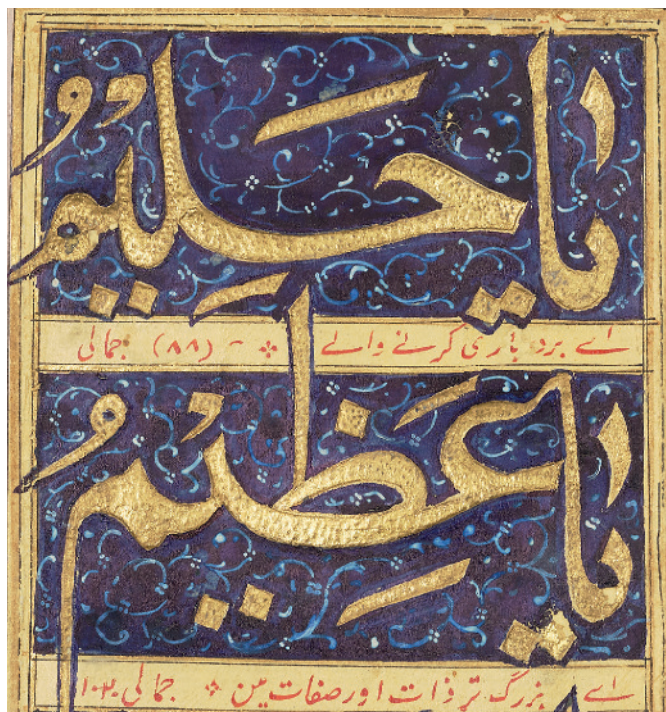 يَا حَلِيمُ
اے بردباری کرنے والے ۔ (۸۸) جمالی
يَا عَظِيمُ
اے بزرگ تر ذات اور صفات مین جمالی ۱۰۲۰